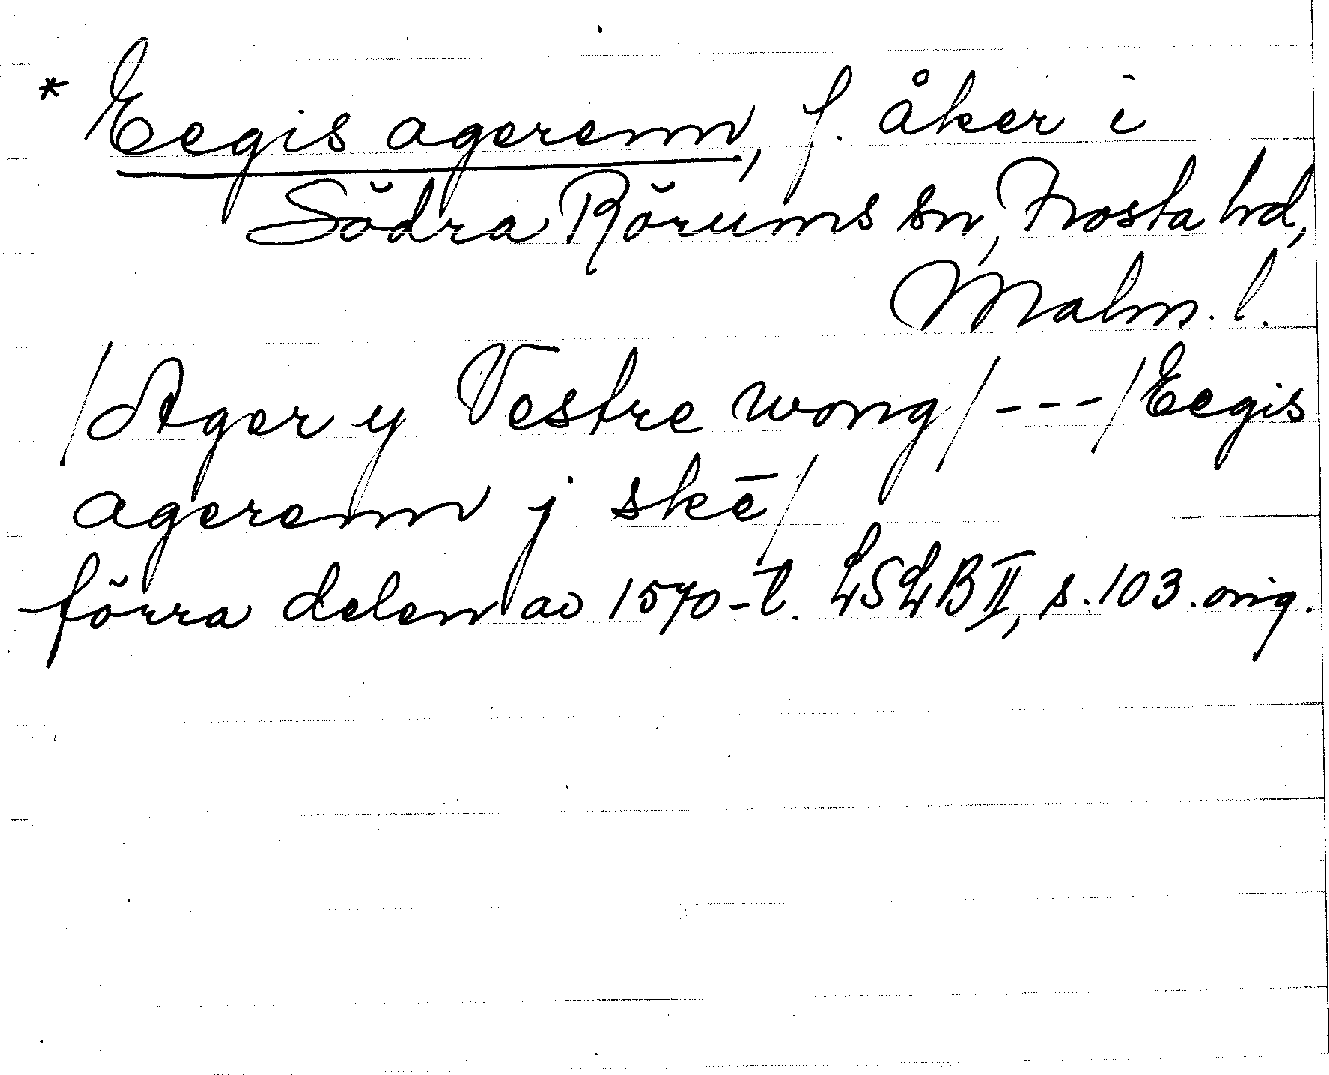 * Eegis agerenn, f. åker i
Södra Rörums sn, Frosta hd,
Malm. l.
/Ager y Vestre wong/ --- /Eegis
agerenn j skē/
förra delen av 1570-t. LSLB II, s. 103. orig.